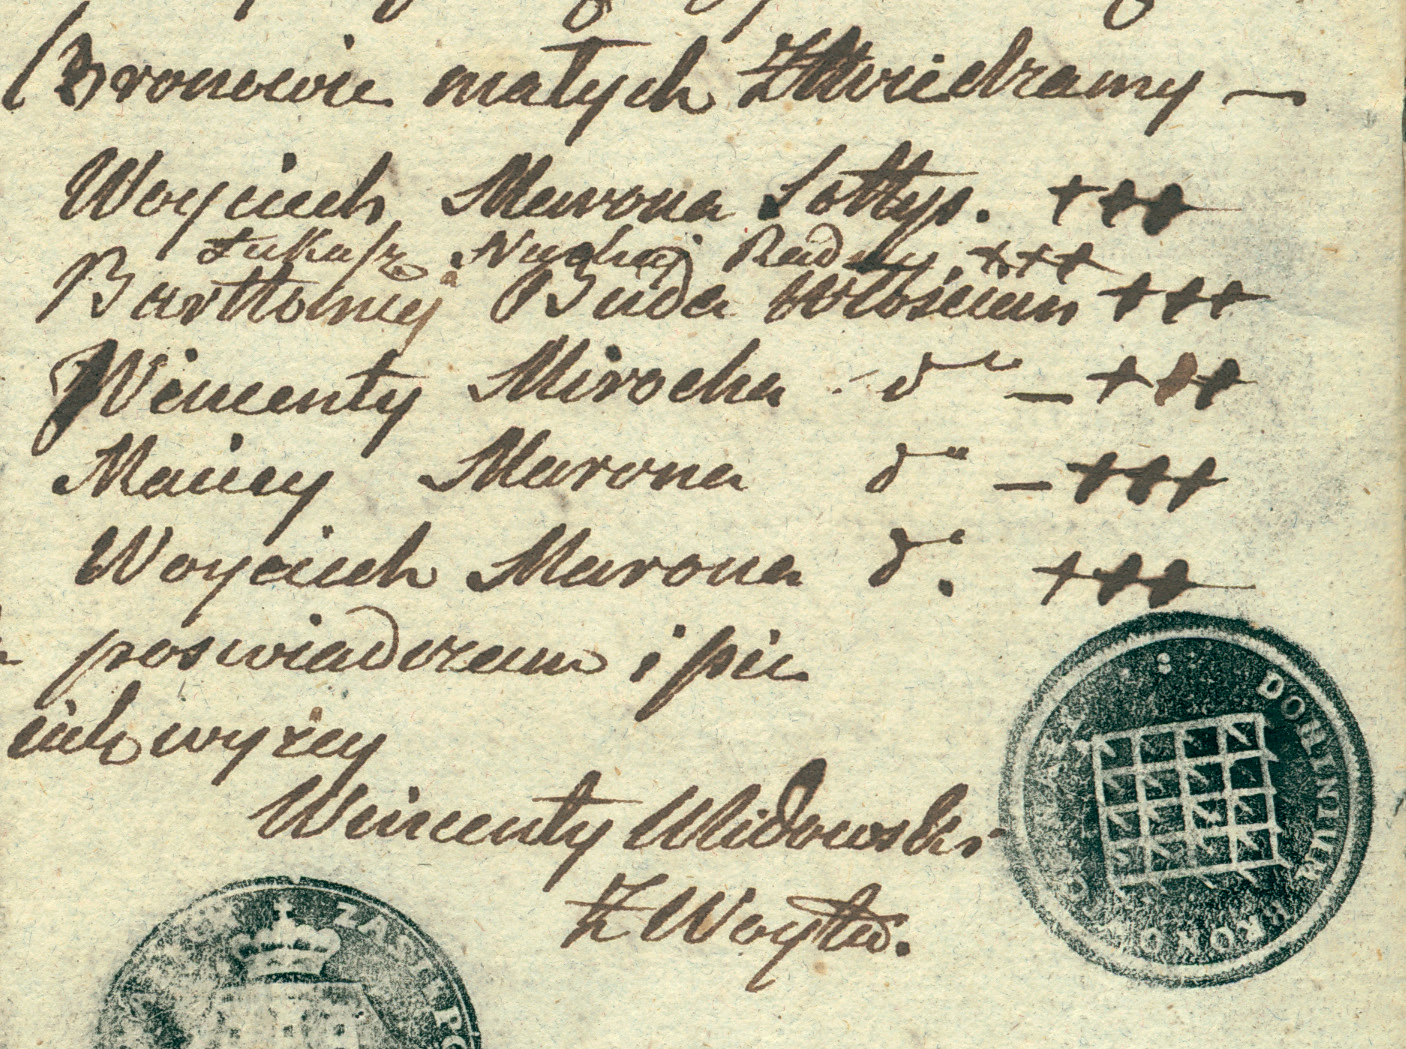 Bronowic małych Stwierdzamy —
Woyciech Marona Sołtys. +++
Łukasz Nuchaj Radny +++
Bartłomiej Buda włościan +++
Wincenty Mirocha do — +++
Maciey Marona do — +++
Woyciech Marona do. +++
poswiadczam i pie
ich wyzey
Wincenty Widowski
Z Woyta.
DOMINIUM BRONO
ZAST PO